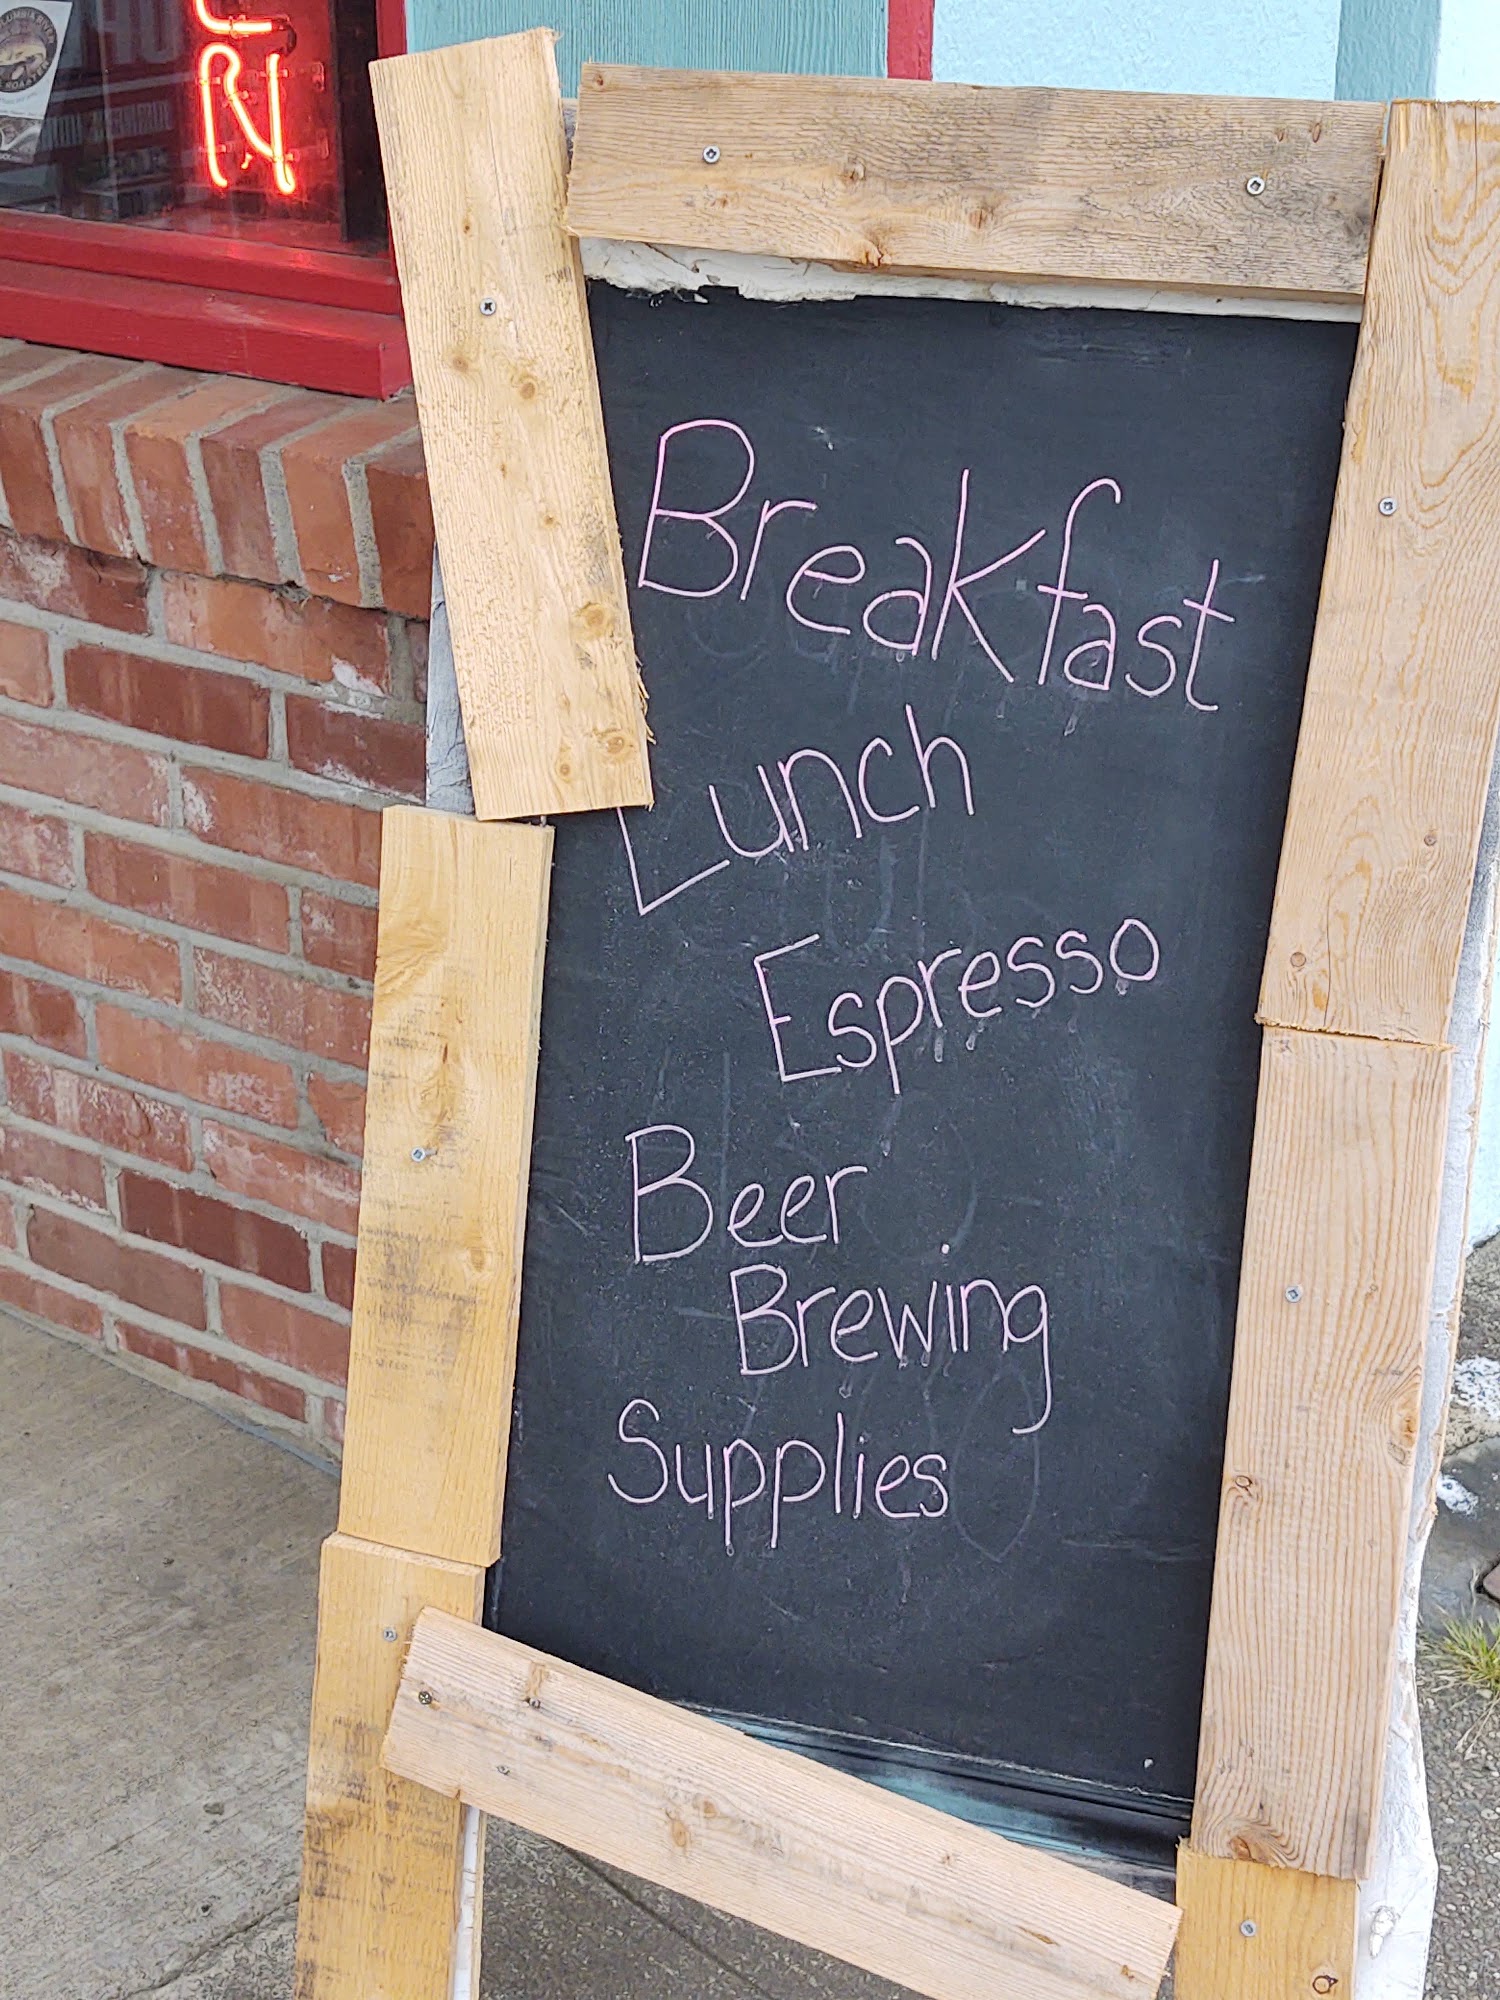 EN
Breakfast
Lunch
Espresso
Beer
Brewing
Supplies